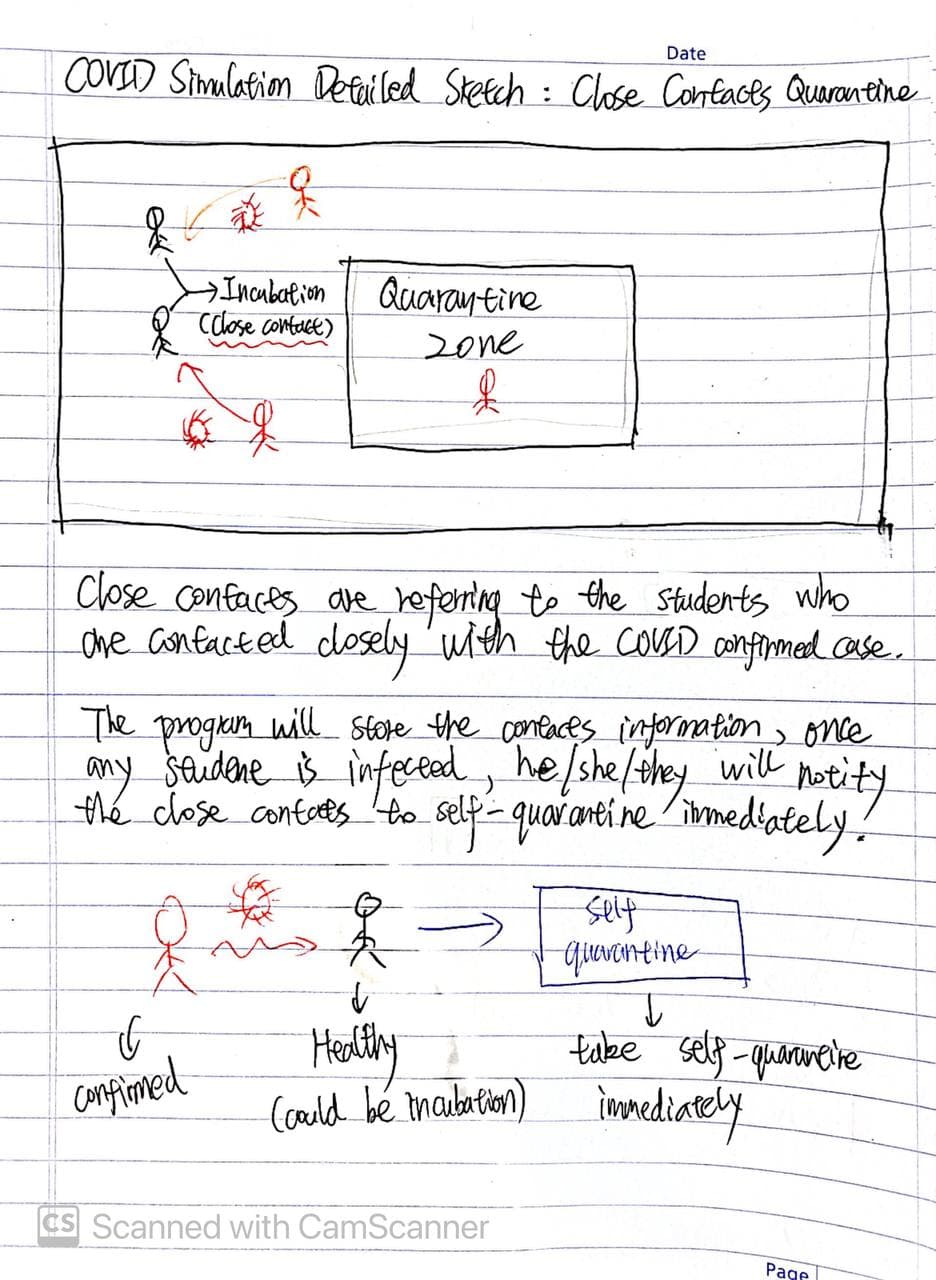 Date
COVID Simulation Detailed Sketch : Close Contacts Quarantine
Incubation
(Close contact)
Quarantine
zone
Close contacts are referring to the students who
are contacted closely with the COVID confirmed case.
The program will store the contacts information, once
any student is infected, he/she/they will notify
the close contacts to self-quarantine immediately!
self
quarantine
confirmed
Healthy
(could be incubation)
take self-quarantine
immediately
CS Scanned with CamScanner
Page